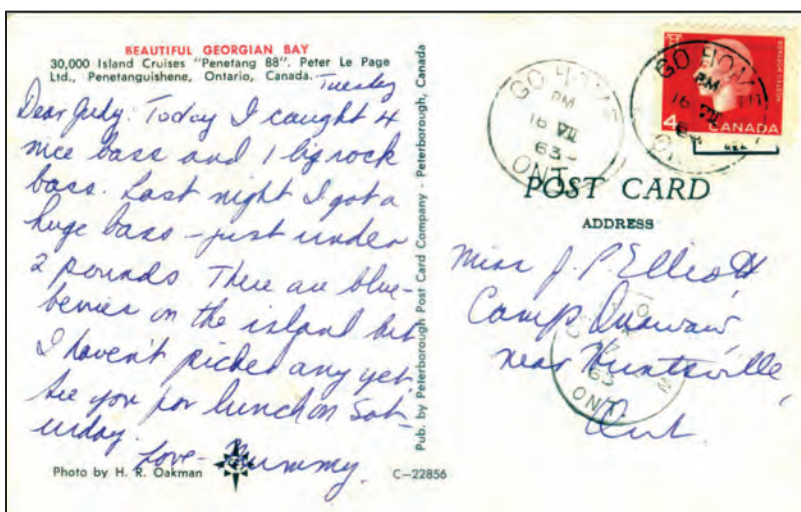 BEAUTIFUL GEORGIAN BAY
30,000 Island Cruises "Penetang 88". Peter Le Page
Ltd., Penetanguishene, Ontario, Canada.
Tuesday
Dear Judy: Today I caught 4
nice bass and 1 big rock
bass. Last night I got a
huge bass - just under
2 pounds. There are blue-
berries on the island but
I haven't picked any yet.
See you for lunch on Sat-
urday.
Love - Mummy.
Photo by H. R. Oakman
C-22856
Pub. by Peterborough Post Card Company - Peterborough, Canada
GO HOME
PM
16 VII
63
ONT.
GO HOME
PM
16 VII
63
ONT
POSTES POSTAGE
4
CANADA
POST CARD
ADDRESS
Miss J. P. Elliott
Camp
near Huntsville,
Ont.
63
ONT